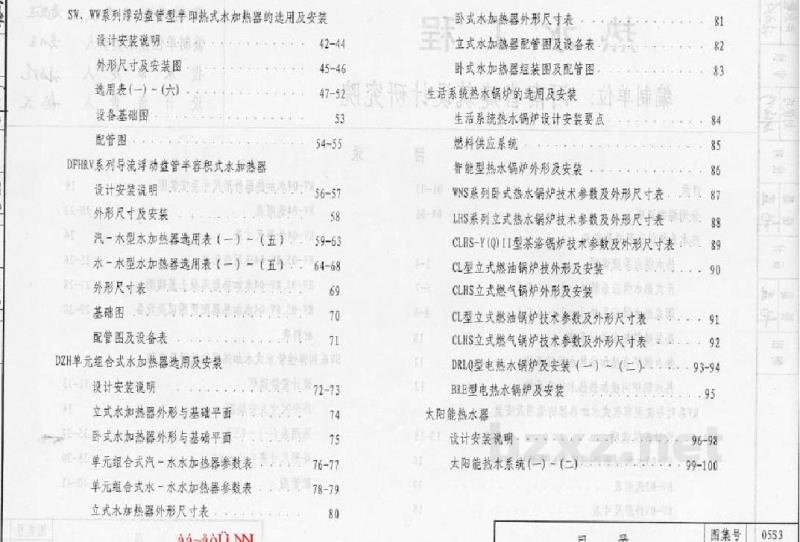 SW、WW系列浮动盘管型半即热式水加热器的选用及安装
设计安装说明 42-44
外形尺寸及安装图 45-46
选用表(一)-(六) 47-52
设备基础图 53
配管图 54-55
DFHRV系列导流浮动盘管半容积式水加热器
设计安装说明 56-57
外形尺寸及安装 58
汽-水型水加热器选用表(一)-(五) 59-63
水-水型水加热器选用表(一)-(五) 64-68
外形尺寸表 69
基础图 70
配管图及设备表 71
DZH单元组合式水加热器选用及安装
设计安装说明 72-73
立式水加热器外形与基础平面 74
卧式水加热器外形与基础平面 75
单元组合式汽-水水加热器参数表 76-77
单元组合式水-水水加热器参数表 78-79
立式水加热器外形尺寸表 80
卧式水加热器外形尺寸表 81
立式水加热器配管图及设备表 82
卧式水加热器组装图及配管图 83
生活系统热水锅炉的选用及安装
生活系统热水锅炉设计安装要点 84
燃料供应系统 85
智能型热水锅炉外形及安装 86
WNS系列卧式热水锅炉技术参数及外形尺寸表 87
LHS系列立式热水锅炉技术参数及外形尺寸表 88
CLHS-Y(Q)II型茶浴锅炉技术参数及外形尺寸表 89
CL型立式燃油锅炉技外形及安装 90
CLHS立式燃气锅炉外形及安装
CL型立式燃油锅炉技术参数及外形尺寸表 91
CLHS立式燃气锅炉技术参数及外形尺寸表 92
DRLQ型电热水锅炉及安装(一)-(二) 93-94
BRE型电热水锅炉及安装 95
太阳能热水器
设计安装说明 96-98
太阳能热水系统(一)-(二) 99-100
bzxz.net
目 录
图集号 05S3